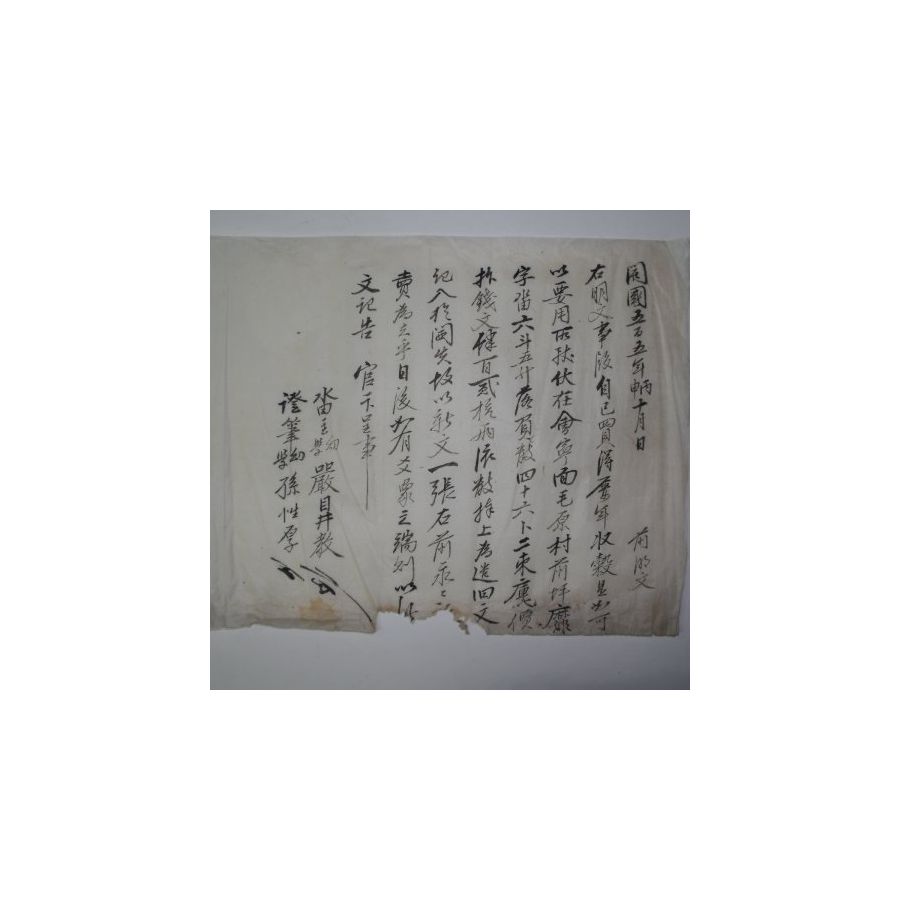 開國五百五年丙申十月日 前明文
右明文事段自己買得累年收穀是如可
以要用所致伏在會寧面毛原村前坪靡
字畓六斗五升落負數四十六卜二束廤價
折錢文肆百貳拾兩依數捧上為遣旧文
記入於閪失故以新文一張右前永永
賣為去乎日後如有爻象之端則以此
文記告 官卞呈事
畓主幼學嚴鎭敎
證筆幼學孫性厚